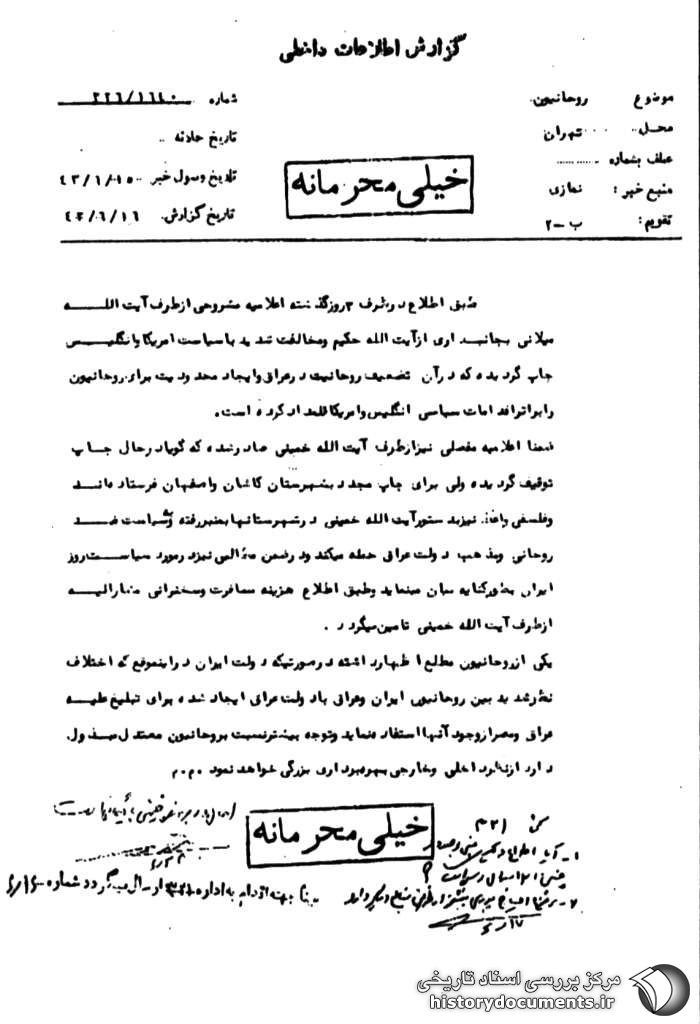 گزارش اطلاعات داخلی
موضوع روحانیون
محل تهران
عطف بشماره
منبع خبر : نمازی
تقویم : ب -۲
شماره ۳۲۶/۱۶۴۰
تاریخ حادثه
تاریخ وصول خبر
تاریخ گزارش
خیلی محرمانه
طبق اطلاع در ظرف ۳ روز گذشته اعلامیه مشروحی از طرف آیت اللـــه
میلانی بجانبداری از آیت الله حکیم و مخالفت شدید با سیاست امریکا و انگلیــس
چاپ گردیده که در آن تضعیف روحانیت در عراق و ایجاد محدودیت برای روحانیون
را بر اثر اقدامات سیاسی انگلیس و امریکا قلمداد کرده است .
ضمنا اعلامیه مفصلی نیز از طرف آیت الله خمینی صادر شده که گویا در حال چــاپ
توقیف گردیده ولی برای چاپ مجدد بشهرستان کاشان و اصفهان فرستاده اند
و فلسفی واعظ نیز بدستور آیت الله خمینی در شهرستانها بمنبر رفته و سیاست ضــد
روحانی و مذهب دولت عراق حمله میکند و در ضمن مطالبی نیز در مورد سیاست روز
ایران بطور کنایه بیان مینماید و طبق اطلاع هزینه مسافرت و سخنرانی مشارالیــه
از طرف آیت الله خمینی تامین میگردد .
یکی از روحانیون مطلع اظهار داشته در صورتیکه دولت ایران در این موقع که اختلاف
نظر شدید بین روحانیون ایران و عراق با دولت عراق ایجاد شده برای تبلیغ علیــه
عراق و مصر از وجود آنها استفاده نماید و توجه بیشتر نسبت بروحانیون معتدل مبــذول
دارد از نظر داخلی و خارجی بهره برداری بزرگی خواهد نمود . م.م
خیلی محرمانه
مرکز بررسی اسناد تاریخی
historydocuments.ir